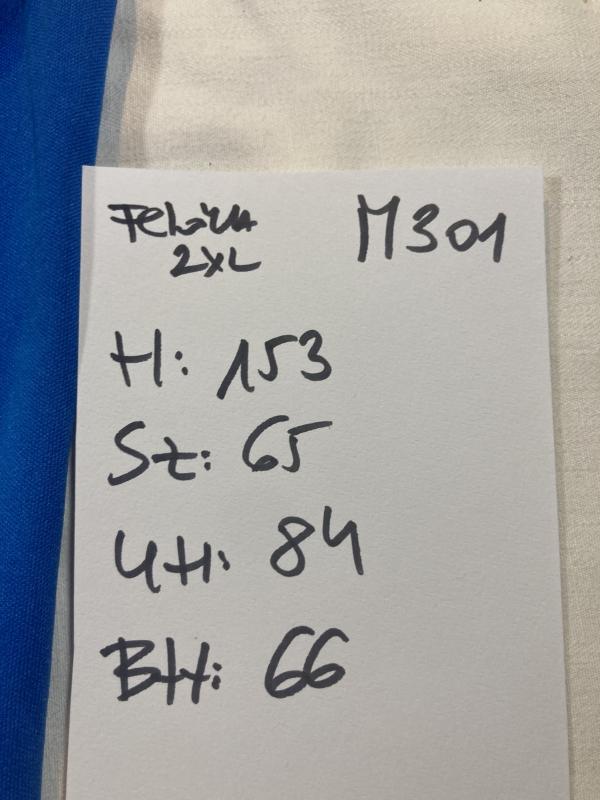 Fehér M301
2XL
H: 153
Sz: 65
UH: 84
BH: 66